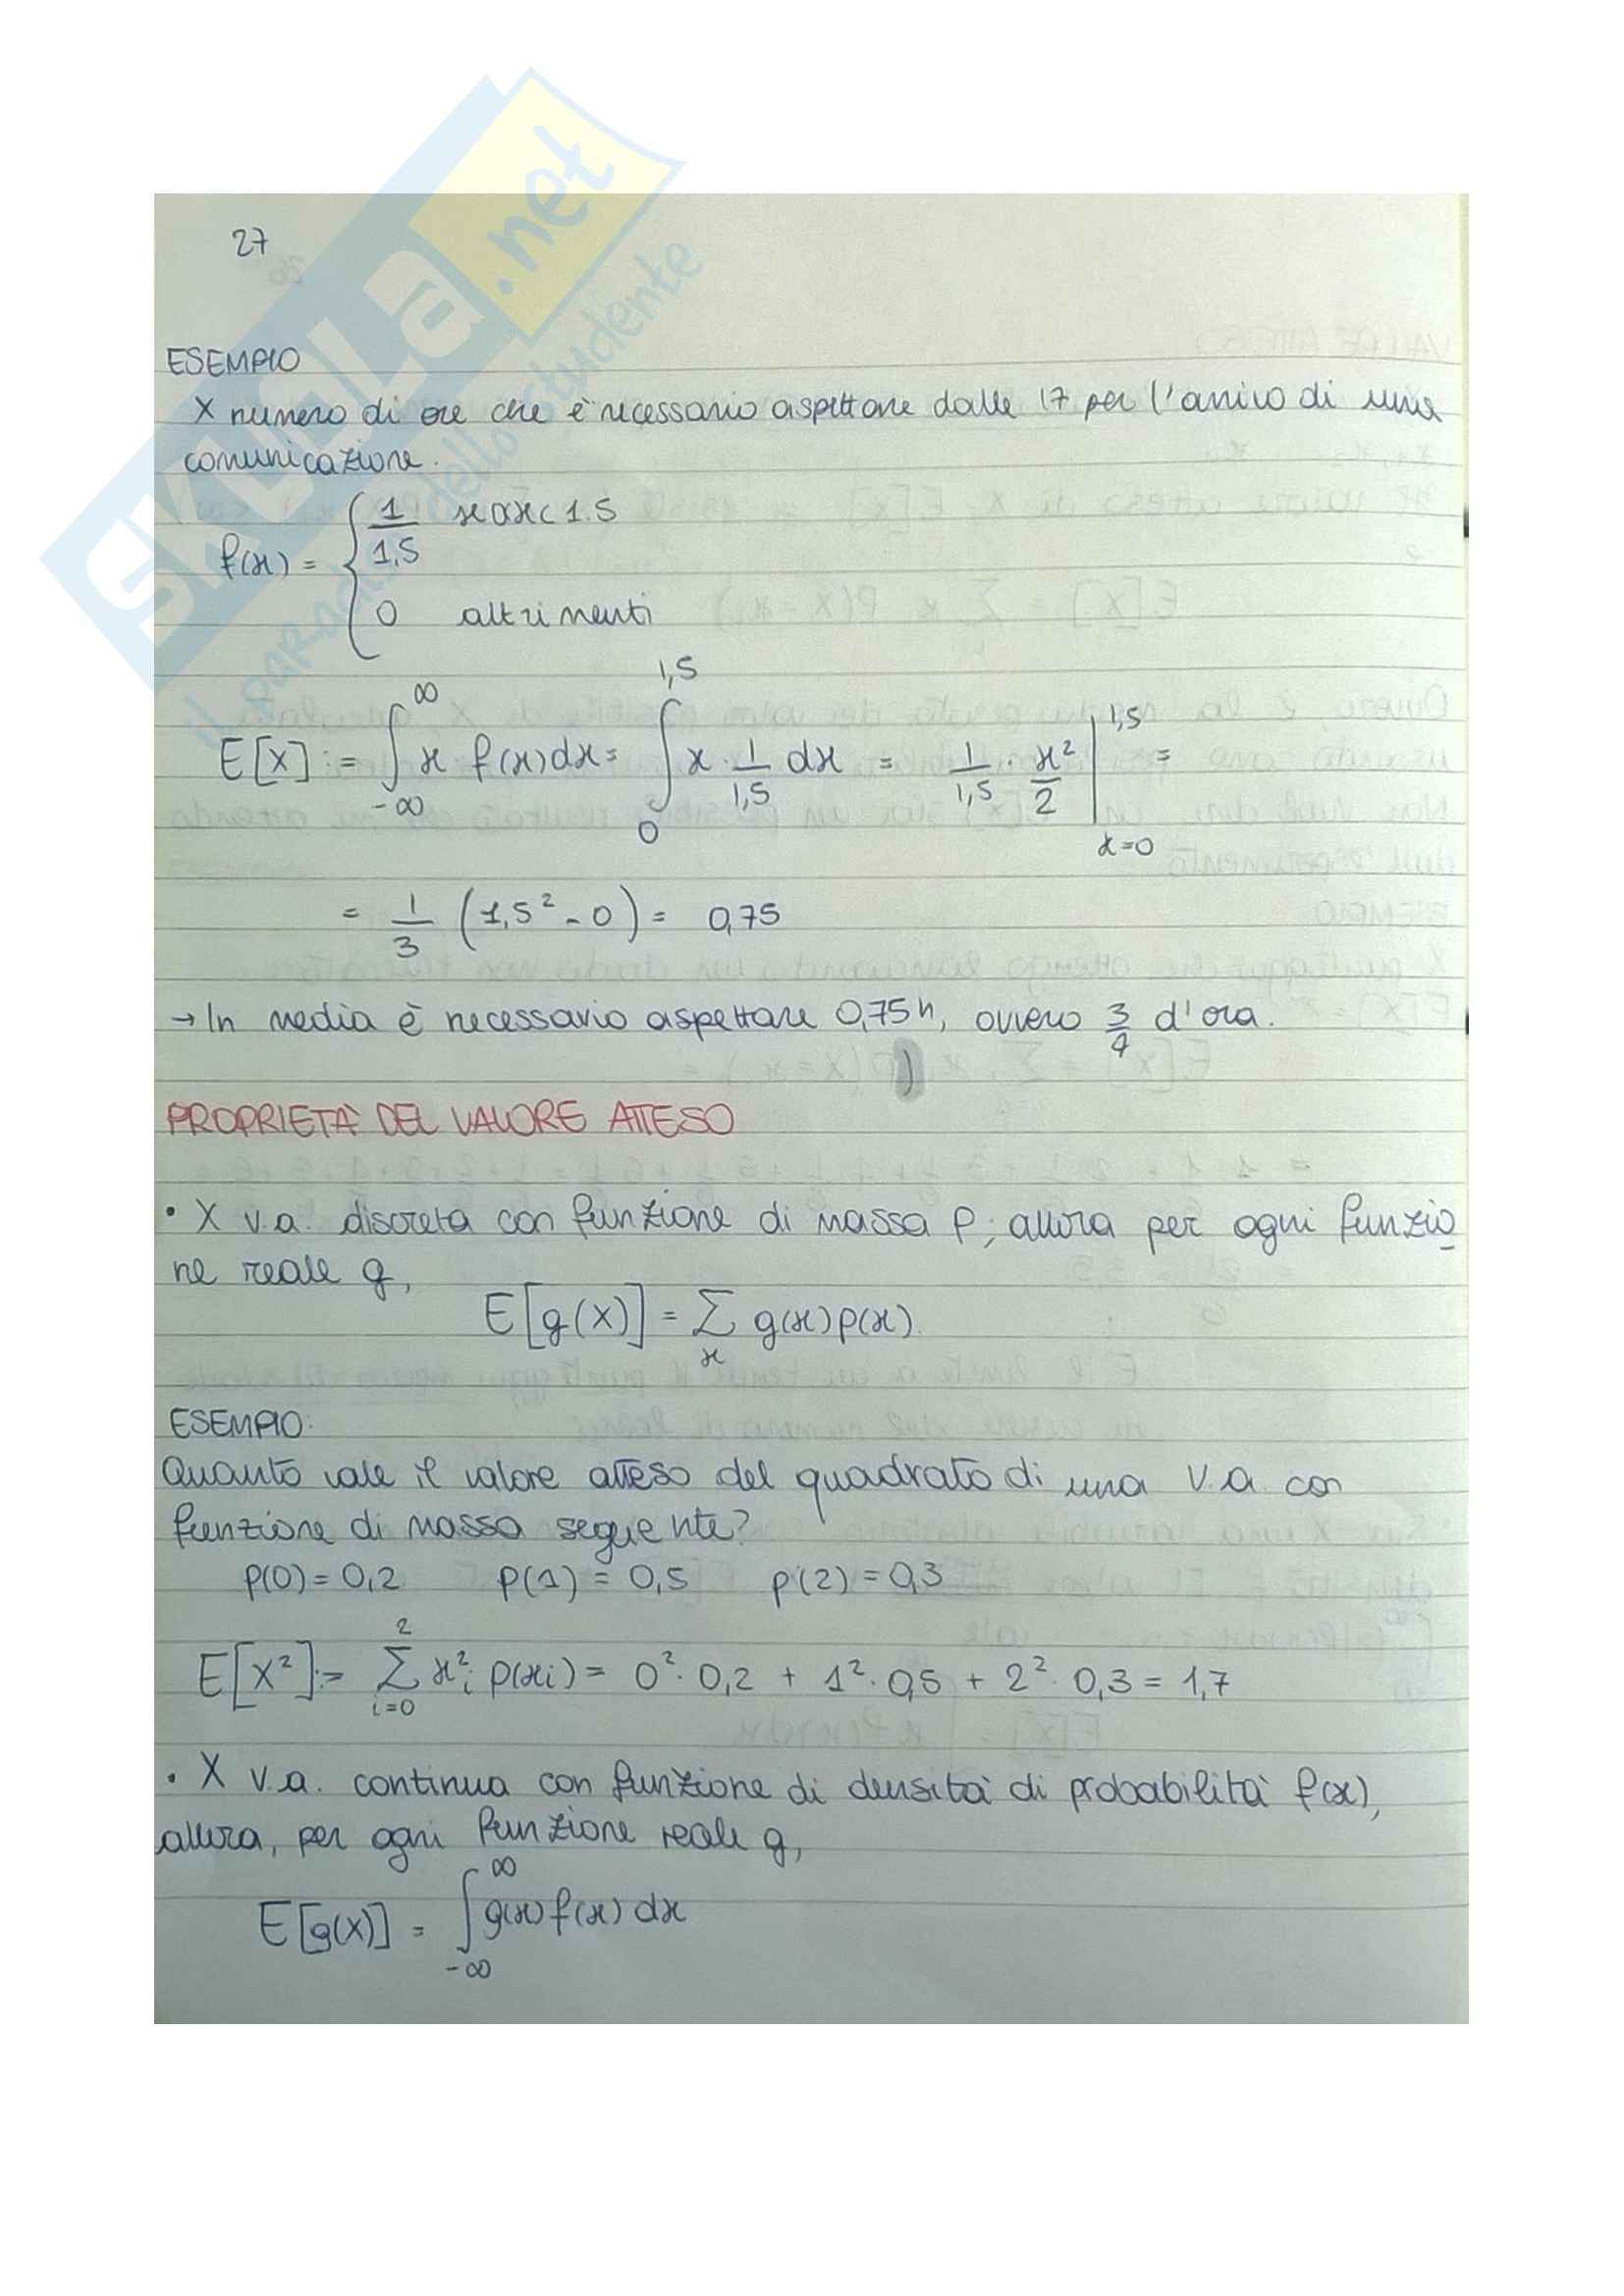 SKUOLA.net
il paradiso dello studente
27
ESEMPIO
X numero di ore che è necessario aspettare dalle 17 per l'arrivo di una
comunicazione.
f(x) = { 1/1,5 se 0<x<1.5
0 altrimenti
E[X] := ∫_{-∞}^{∞} x f(x)dx = ∫_{0}^{1,5} x · 1/1,5 dx = 1/1,5 · x²/2 |_{x=0}^{1,5} =
= 1/3 (1,5² - 0) = 0,75
→ In media è necessario aspettare 0,75h, ovvero 3/4 d'ora.
PROPRIETÀ DEL VALORE ATTESO
• X v.a. discreta con funzione di massa p; allora per ogni funzio
ne reale g,
E[g(X)] = Σ_x g(x)p(x).
ESEMPIO:
Quanto vale il valore atteso del quadrato di una v.a. con
funzione di massa seguente?
p(0) = 0,2 p(1) = 0,5 p(2) = 0,3
E[X²] := Σ_{i=0}^{2} x²_i p(xi) = 0² · 0,2 + 1² · 0,5 + 2² · 0,3 = 1,7
• X v.a. continua con funzione di densità di probabilità f(x),
allora, per ogni funzione reale g,
E[g(X)] = ∫_{-∞}^{∞} g(x) f(x) dx